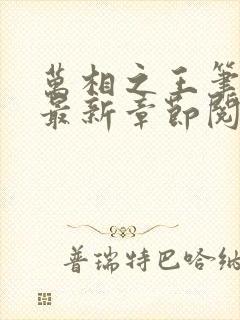 萬相之王筆
最新章節閱
普瑞特巴哈納